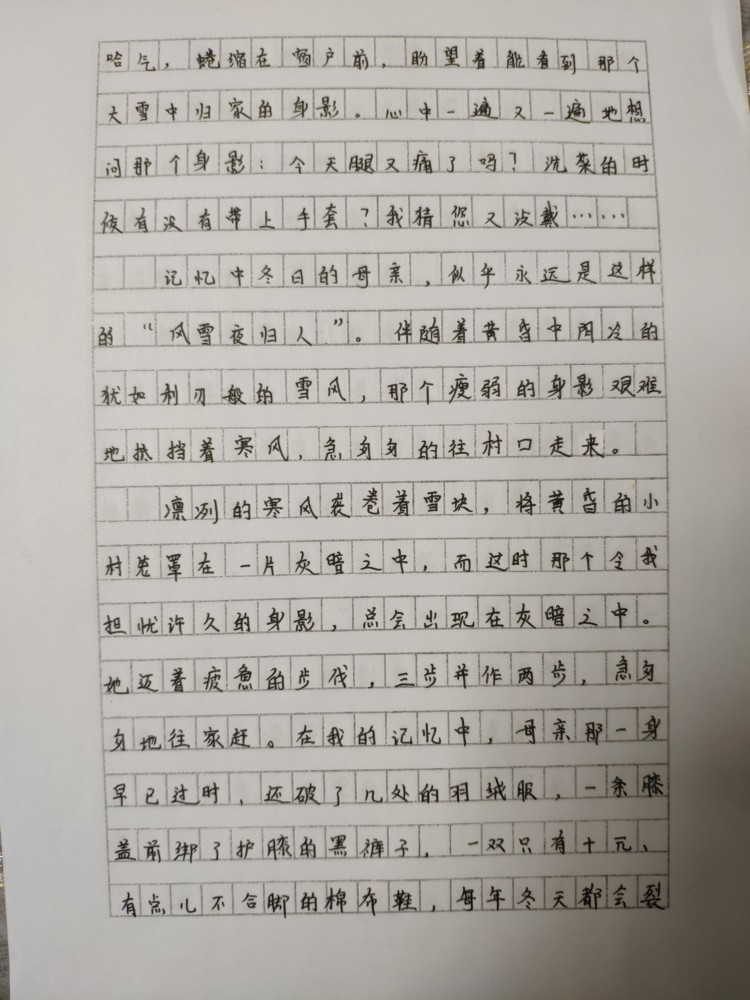 哈气，蜷缩在窗户前，盼望着能看到那个
大雪中归家的身影。心中一遍又一遍地想
问那个身影：今天腿又痛了吗？洗菜的时
候有没有带上手套？我猜您又没戴……
记忆中冬日的母亲，似乎永远是这样
的“风雪夜归人”。伴随着黄昏中阴冷的
犹如利刃般的雪风，那个瘦弱的身影艰难
地抵挡着寒风，急匆匆的往村口走来。
凛冽的寒风裹卷着雪块，将黄昏的小
村笼罩在一片灰暗之中，而这时那个令我
担忧许久的身影，总会出现在灰暗之中。
她迈着疲惫的步伐，三步并作两步，急匆
匆地往家赶。在我的记忆中，母亲那一身
早已过时、还破了几处的羽绒服，一条膝
盖前绑了护膝的黑裤子，一双只有十元、
有点儿不合脚的棉布鞋，每年冬天都会裂